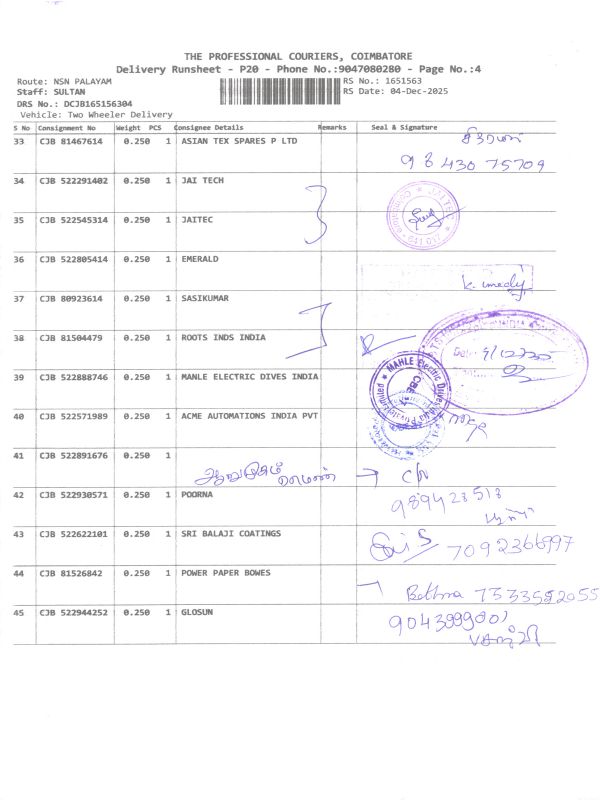 THE PROFESSIONAL COURIERS, COIMBATORE
Delivery Runsheet - P20 - Phone No.:9047080280 - Page No.:4
Route: NSN PALAYAM RS No.: 1651563
Staff: SULTAN RS Date: 04-Dec-2025
DRS No.: DCJB165156304
Vehicle: Two Wheeler Delivery
S No Consignment No Weight PCS Consignee Details Remarks Seal & Signature
33 CJB 81467614 0.250 1 ASIAN TEX SPARES P LTD
98430 75709
34 CJB 522291402 0.250 1 JAI TECH
35 CJB 522545314 0.250 1 JAITEC
36 CJB 522805414 0.250 1 EMERALD
37 CJB 80923614 0.250 1 SASIKUMAR
38 CJB 81504479 0.250 1 ROOTS INDS INDIA
39 CJB 522888746 0.250 1 MANLE ELECTRIC DIVES INDIA
MAHLE Electric Drives
40 CJB 522571989 0.250 1 ACME AUTOMATIONS INDIA PVT
41 CJB 522891676 0.250 1
42 CJB 522930571 0.250 1 POORNA
43 CJB 522622101 0.250 1 SRI BALAJI COATINGS
7092366997
44 CJB 81526842 0.250 1 POWER PAPER BOWES
45 CJB 522944252 0.250 1 GLOSUN